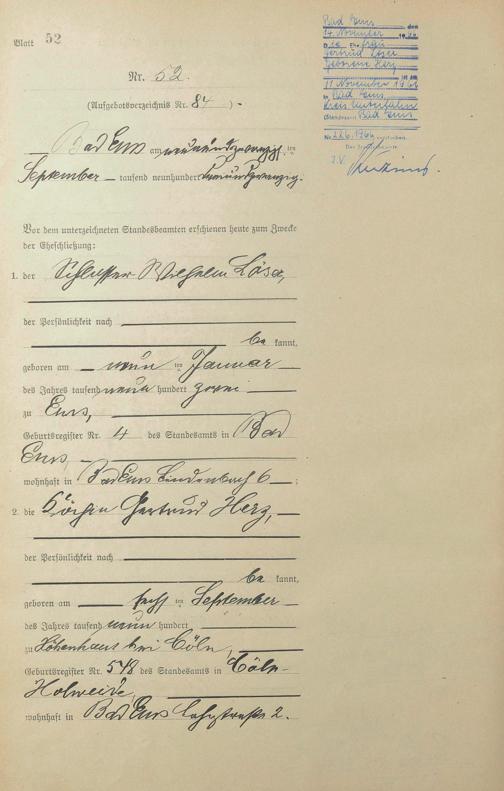 Blatt 52
Nr. 52.
(Aufgebotsverzeichnis Nr. 84) -
Bad Ems am neunundzwanzigsten
September tausend neunhundert
Vor dem unterzeichneten Standesbeamten erschienen heute zum Zwecke
der Eheschließung:
1. der Schlosser Wilhelm Löser,
der Persönlichkeit nach
be kannt,
geboren am neun ten Januar
des Jahres tausend neun hundert zwei
zu Ems,
Geburtsregister Nr. 4 des Standesamts in Bad
Ems,
wohnhaft in Bad Ems Lindenbach 6 ;
2. die Köchin Gertrud Herz,
der Persönlichkeit nach
be kannt,
geboren am sechs ten September
des Jahres tausend neun hundert
zu Höhenhaus bei Cöln,
Geburtsregister Nr. 578 des Standesamts in Cöln-
Holweide,
wohnhaft in Bad Ems Lahnstraße 2.
Bad Ems, den
14. November
Ehefrau
Gertrud Löser
geborene Herz
ist am
11. November 1966
in Bad Ems,
Kreis Unterlahn
Standesamt Bad Ems
Nr. 226/1966 verstorben.
Der Standesbeamte
I.V.